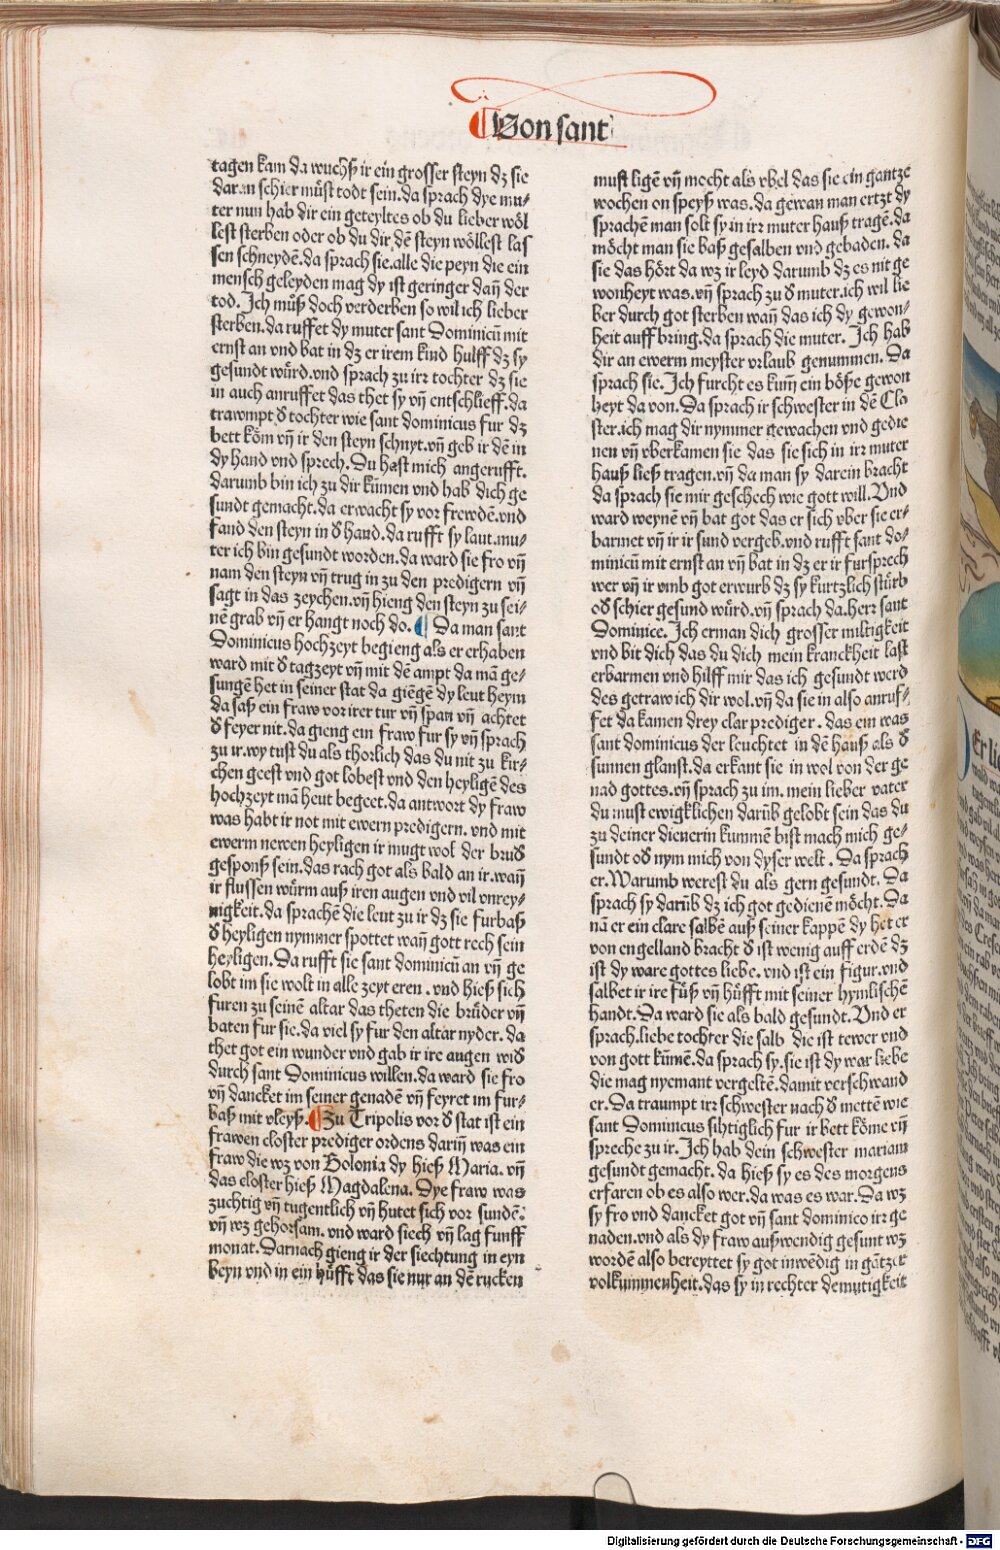 Von sant
tagen kam da wuchß ir ein grosser steyn dz sie
daran schier müst todt sein. da sprach dye mu-
ter nun hab dir ein geteyltes ob du lieber wöl
lest sterben oder ob du dir dē steyn wöllest las
sen schneydē. da sprach sie. alle die peyn die ein
mensch geleyden mag dy ist geringer dañ der
tod. Ich müß doch verderben so wil ich lieber
sterben. da ruffet dy muter sant Dominicū mit
ernst an vnd bat in dz er irem kind hulff dz sy
gesundt würd. vnd sprach zu irr tochter dz sie
in auch anruffet das thet sy vñ entschlieff. da
trawmpt ď tochter wie sant dominicus fur dz
bett köm vñ ir den steyn schnyt. vñ geb ir dē in
dy hand vnd sprech. Du hast mich angerufft.
darumb bin ich zu dir kūmen vnd hab dich ge
sundt gemacht. da erwacht sy vor frewdē. vnd
fand den steyn in ď hand. da rufft sy laut. mu-
ter ich bin gesundt worden. da ward sie fro vñ
nam den steyn vñ trug in zu den predigern vñ
sagt in das zeychen. vñ hieng den steyn zu sei-
nē grab vñ er hangt noch do. ¶ Da man sant
Dominicus hochzeyt begieng als er erhaben
ward mit ď tagzeyt vñ mit dē ampt da mā ge-
sungē het in seiner stat da giēgē dy leut heym
da saß ein fraw vor irer tur vñ span vñ achtet
ď feyer nit. da gieng ein fraw fur sy vñ sprach
zu ir. wy tust du als thorlich das du nit zu kir-
chen geest vnd got lobest vnd den heyligē des
hochzeyt mā heut begeet. da antwort dy fraw
was habt ir not mit ewern predigern. vnd mit
ewerm newen heyligen ir mugt wol der bruď
gesponß sein. das rach got als bald an ir. wañ
ir flussen würm auß iren augen vnd vil vnrey-
nigkeit. da sprachē die leut zu ir dz sie furbaß
ď heyligen nymmer spottet wañ gott rech sein
heyligen. Da rufft sie sant dominicū an vñ ge
lobt im sie wolt in alle zeyt eren. vnd hieß sich
furen zu seinē altar das theten die brüder vñ
baten fur sie. da viel sy fur den altar nyder. da
thet got ein wunder vnd gab ir ire augen wiď
durch sant Dominicus willen. da ward sie fro
vñ dancket im seiner genadē vñ feyret im fur-
baß mit vleyß. ¶ Zu Tripolis vor ď stat ist ein
frawen closter prediger ordens dariñ was ein
fraw die wz von Bolonia dy hieß Maria. vñ
das closter hieß Magdalena. Dye fraw was
zuchtig vñ tugentlich vñ hutet sich vor sundē.
vñ wz gehorsam. vnd ward siech vñ lag funff
monat. Darnach gieng ir der siechtung in eyn
beyn vnd in ein hüfft das sie nur an dē rucken
must ligē vñ mocht als vbel das sie ein gantze
wochen on speyß was. da gewan man ertzt dy
sprachē man solt sy in irr muter hauß tragē. da
möcht man sie baß gesalben vnd gebaden. da
sie das hört da wz ir leyd darumb dz es nit ge
wonheyt was. vñ sprach zu ď muter. ich wil lie
ber durch got sterben wañ das ich dy gewon-
heit auff bring. da sprach die muter. Ich hab
dir an ewerm meyster vrlaub genummen. Da
sprach sie. Ich furcht es kum̄ ein böße gewon
heyt da von. Da sprach ir schwester in dē Clo
ster. ich mag dir nymmer gewachen vnd gedie
nen vñ vberkamen sie das sie sich in irr muter
hauß ließ tragen. vñ da man sy darein bracht
da sprach sie mir geschech wie gott will. Vnd
ward weynē vñ bat got das er sich vber sie er-
barmet vñ ir ir sund vergeb. vnd rufft sant do-
minicū mit ernst an vñ bat in dz er ir fursprech
wer vñ ir vmb got erwurb dz sy kurtzlich stürb
oď schier gesund würd. vñ sprach da. herr sant
Dominice. Ich erman dich grosser miltigkeit
vnd bit dich das du dich mein kranckheit last
erbarmen vnd hilff mir das ich gesundt werd
des getraw ich dir wol. vñ da sie in also anruf-
fet da kamen drey clar prediger. das ein was
sant dominicus der leuchtet in dē hauß als ď
sunnen glanst. da erkant sie in wol von der ge
nad gottes. vñ sprach zu im. mein lieber vater
du must ewigklichen darūb gelobt sein das du
zu deiner dienerin kummē bist mach mich ge-
sundt oď nym mich von dyser welt. Da sprach
er. Warumb werest du als gern gesundt. Da
sprach sy darūb dz ich got gedienē möcht. Da
nā er ein clare salbē auß seiner kappē dy het er
von engelland bracht ď ist wenig auff erdē dz
ist dy ware gottes liebe. vnd ist ein figur. vnd
salbet ir ire füß vñ hüfft mit seiner hymlischē
handt. Da ward sie als bald gesundt. Vnd er
sprach. liebe tochter die salb die ist tewer vnd
von gott kūmē. da sprach sy. sie ist dy war liebe
die mag nyemant vergeltē. damit verschwand
er. Da traumpt irr schwester nach ď mettē wie
sant Dominicus sihtiglich fur ir bett köme vñ
spreche zu ir. Ich hab dein schwester mariam
gesundt gemacht. da hieß sy es des morgens
erfaren ob es also wer. da was es war. Da wz
sy fro vnd dancket got vñ sant dominico irr ge
naden. vnd als dy fraw außwendig gesunt wz
wordē also bereyttet sy got inwēdig in gātzer
volkummenheit. das sy in rechter demutigkeit
Digitalisierung gefördert durch die Deutsche Forschungsgemeinschaft - DFG